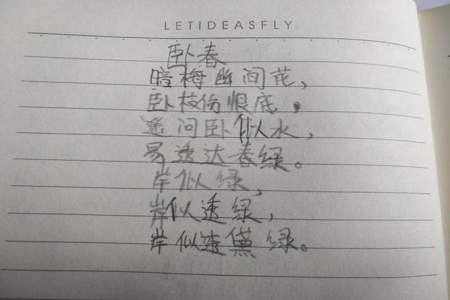 LETIDEASFLY
卧春
暗梅幽间花,
卧枝伤恨底,
遥问卧似水,
易透达春绿。
岸似绿,
岸似透绿,
岸似透黛绿。